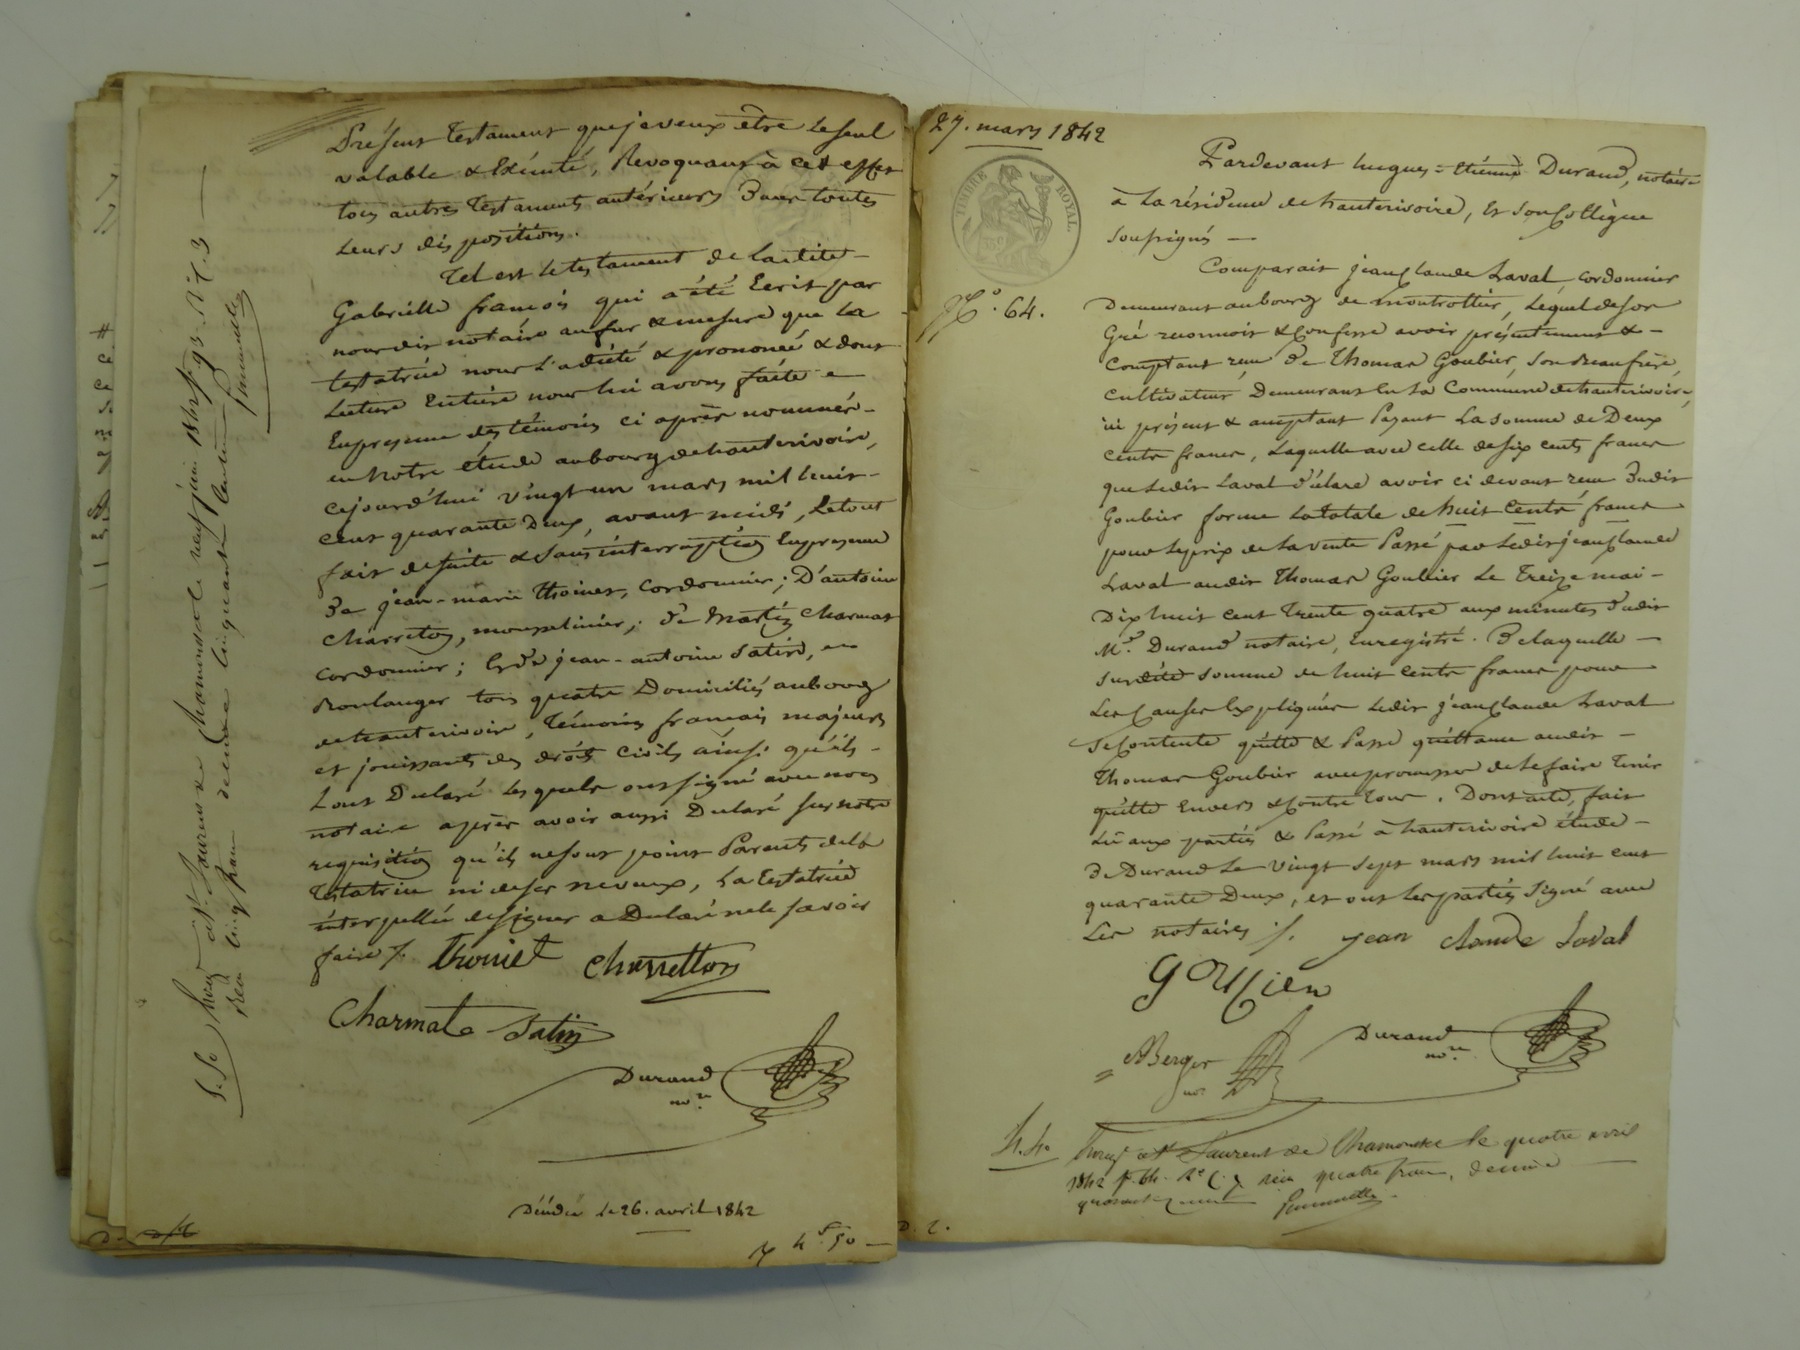 Présent testament que je veux être le seul
valable & Exécuté, Revoquant à cet effet
tous autres testaments antérieurs Dans toutes
Leurs dispositions.
Tel est le testament de Ladite
Gabrielle françois qui a été Ecrit par
nous dit notaire au fur & mesure que la
testatrice nous l'a dicté & prononcé & dont
Lecture Entière nous lui avons faite
En presence des témoins ci après nommés
en Notre étude au bourg de hauterivoire,
cejourd'hui vingt un mars mil huit
cent quarante Deux, avant midi, Le tout
fait de suite & sans interruption En presence
De jean-marie thoinet, cordonnier; D'antoine
Charreton, mousselinier; De Martin Charmat
cordonnier; Et De jean-antoine Satin,
Boulanger tous quatre Domiciliés au bourg
de hauterivoire, Témoins français majeurs
et jouissants des droits civils ainsi qu'ils
L'ont Declaré lesquels ont signé avec nous
notaire après avoir aussi Declaré sur notre
requisition qu'ils ne sont point Parents de la
Testatrice ni de ses neveux, La Testatrice
interpellée de signer a Declaré ne le savoir
faire /. thoinet Charretton
Charmat Satin
Durand
nore
Décédée le 26. avril 1842
4 f 50
27. mars 1842
TIMBRE ROYAL.
No. 64.
Pardevant hugues=Etienne Durand, notaire
à La résidence de hauterivoire, Et son Collègue
soussignés
Comparait jean Claude Laval, cordonnier
Demeurant au bourg de montrottier, Lequel de son
Gré reconnoit & Confesse avoir présentement &
Comptant reçu De Thomas Goubier, son Beaufrère,
cultivateur Demeurant en La Commune de hauterivoire,
ici présent & acceptant Payant La somme de Deux
Cents francs, Laquelle avec celle de six cents francs
que Ledit Laval Déclare avoir ci devant reçue Dudit
Goubier forme La totale de huit Cents francs
pour Le prix de La vente Passé par Ledit jean Claude
Laval audit Thomas Goubier Le Treize mai
Dix huit cent Trente quatre aux minutes Dudit
Me. Durand notaire, Enregistré. De laquelle
susdite somme de huit Cents francs pour
Les Causes Expliquées Ledit jean Claude Laval
se Contente quitte & Passe quittance audit
Thomas Goubier avec promesse de Le faire Tenir
quitte Envers & Contre Tous. Dont acte, fait
Lu aux parties & Passé à hauterivoire étude
De Durand Le vingt sept mars mil huit cent
quarante Deux, et ont Les parties signé avec
Les notaires /. jean claude Laval
Goubier
Berger
nore
Durand
nore
4.40 Enreg. à St Laurent de Chamousset le quatre avril
1842 fo. 64. Ro C. 7 reçu quatre francs, decime
quarante centimes